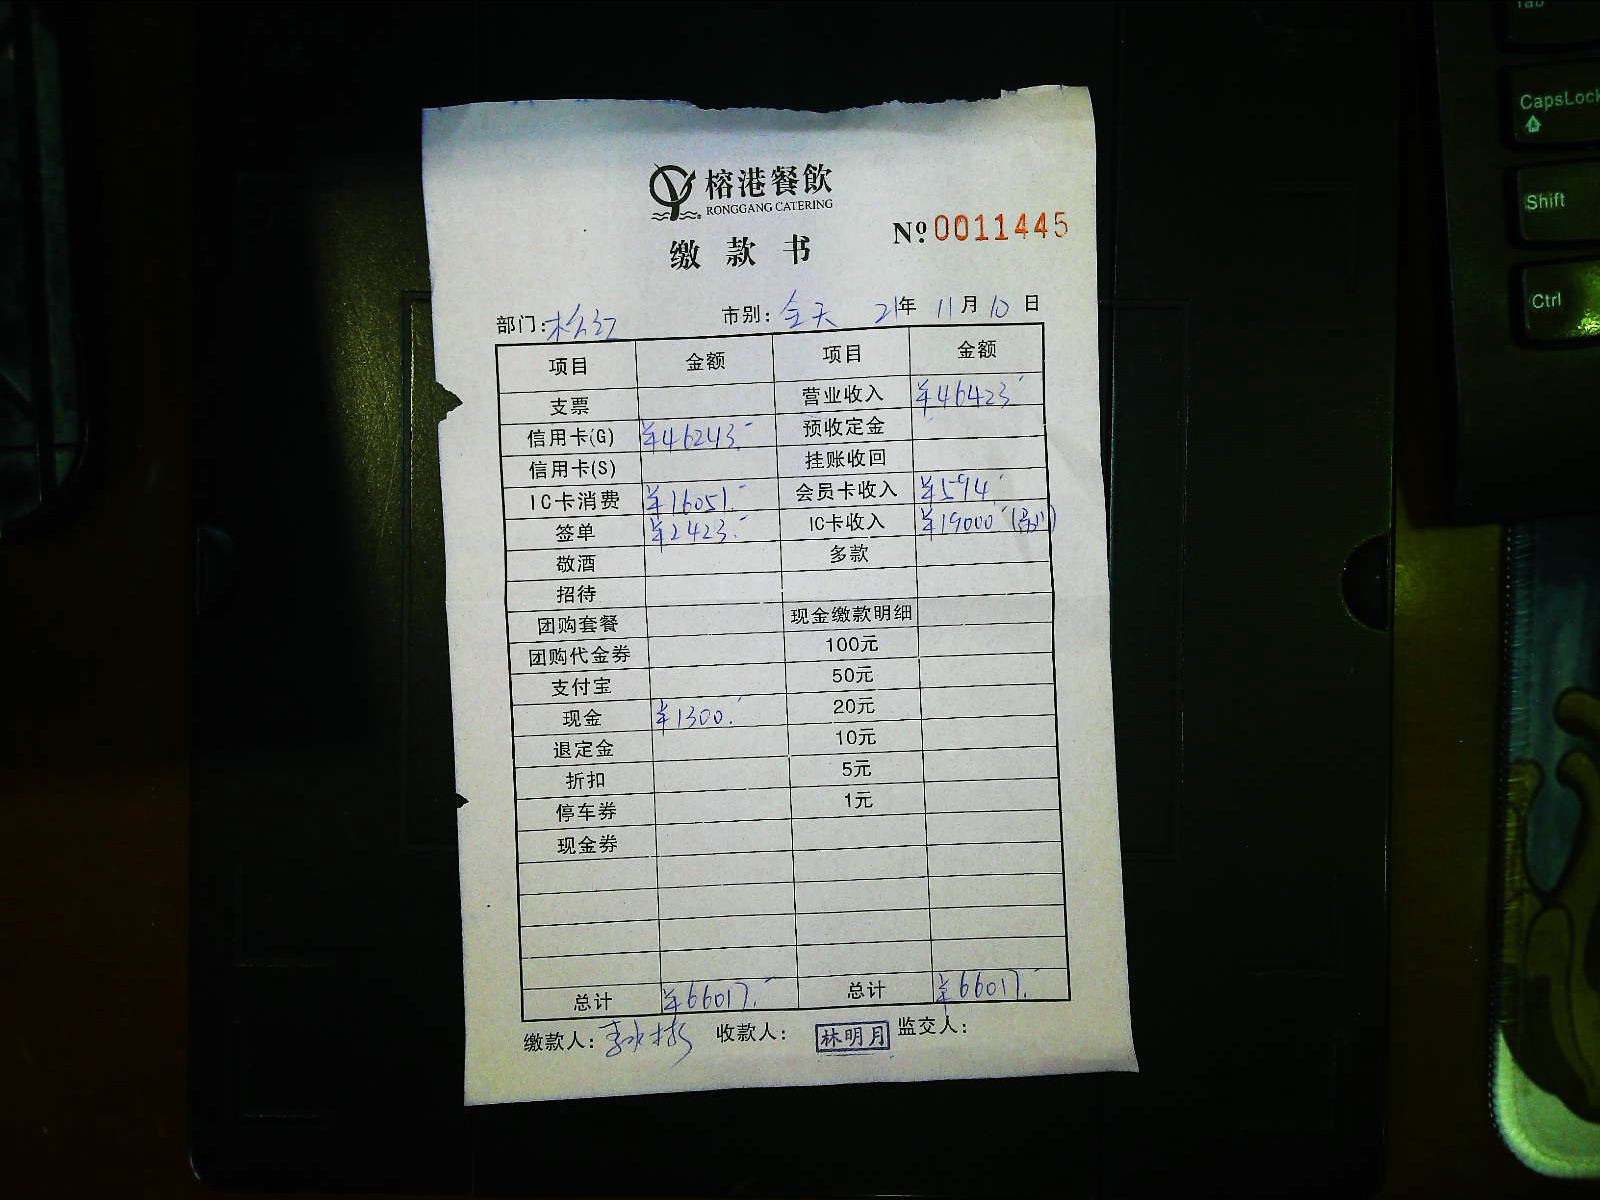 榕港餐飲
RONGGANG CATERING
缴款书
№0011445
部门: 市别:全天 21年 11月10日
项目 金额 项目 金额
支票 营业收入 ¥46423
信用卡(G) ¥46243 预收定金
信用卡(S) 挂账收回
IC卡消费 ¥16051. 会员卡收入 ¥594
签单 ¥2423. IC卡收入 ¥19000
敬酒 多款
招待
团购套餐 现金缴款明细
团购代金券 100元
支付宝 50元
现金 ¥1300. 20元
退定金 10元
折扣 5元
停车券 1元
现金券
总计 ¥66017. 总计 ¥66017.
缴款人: 收款人: 林明月 监交人:
CapsLock
Shift
Ctrl